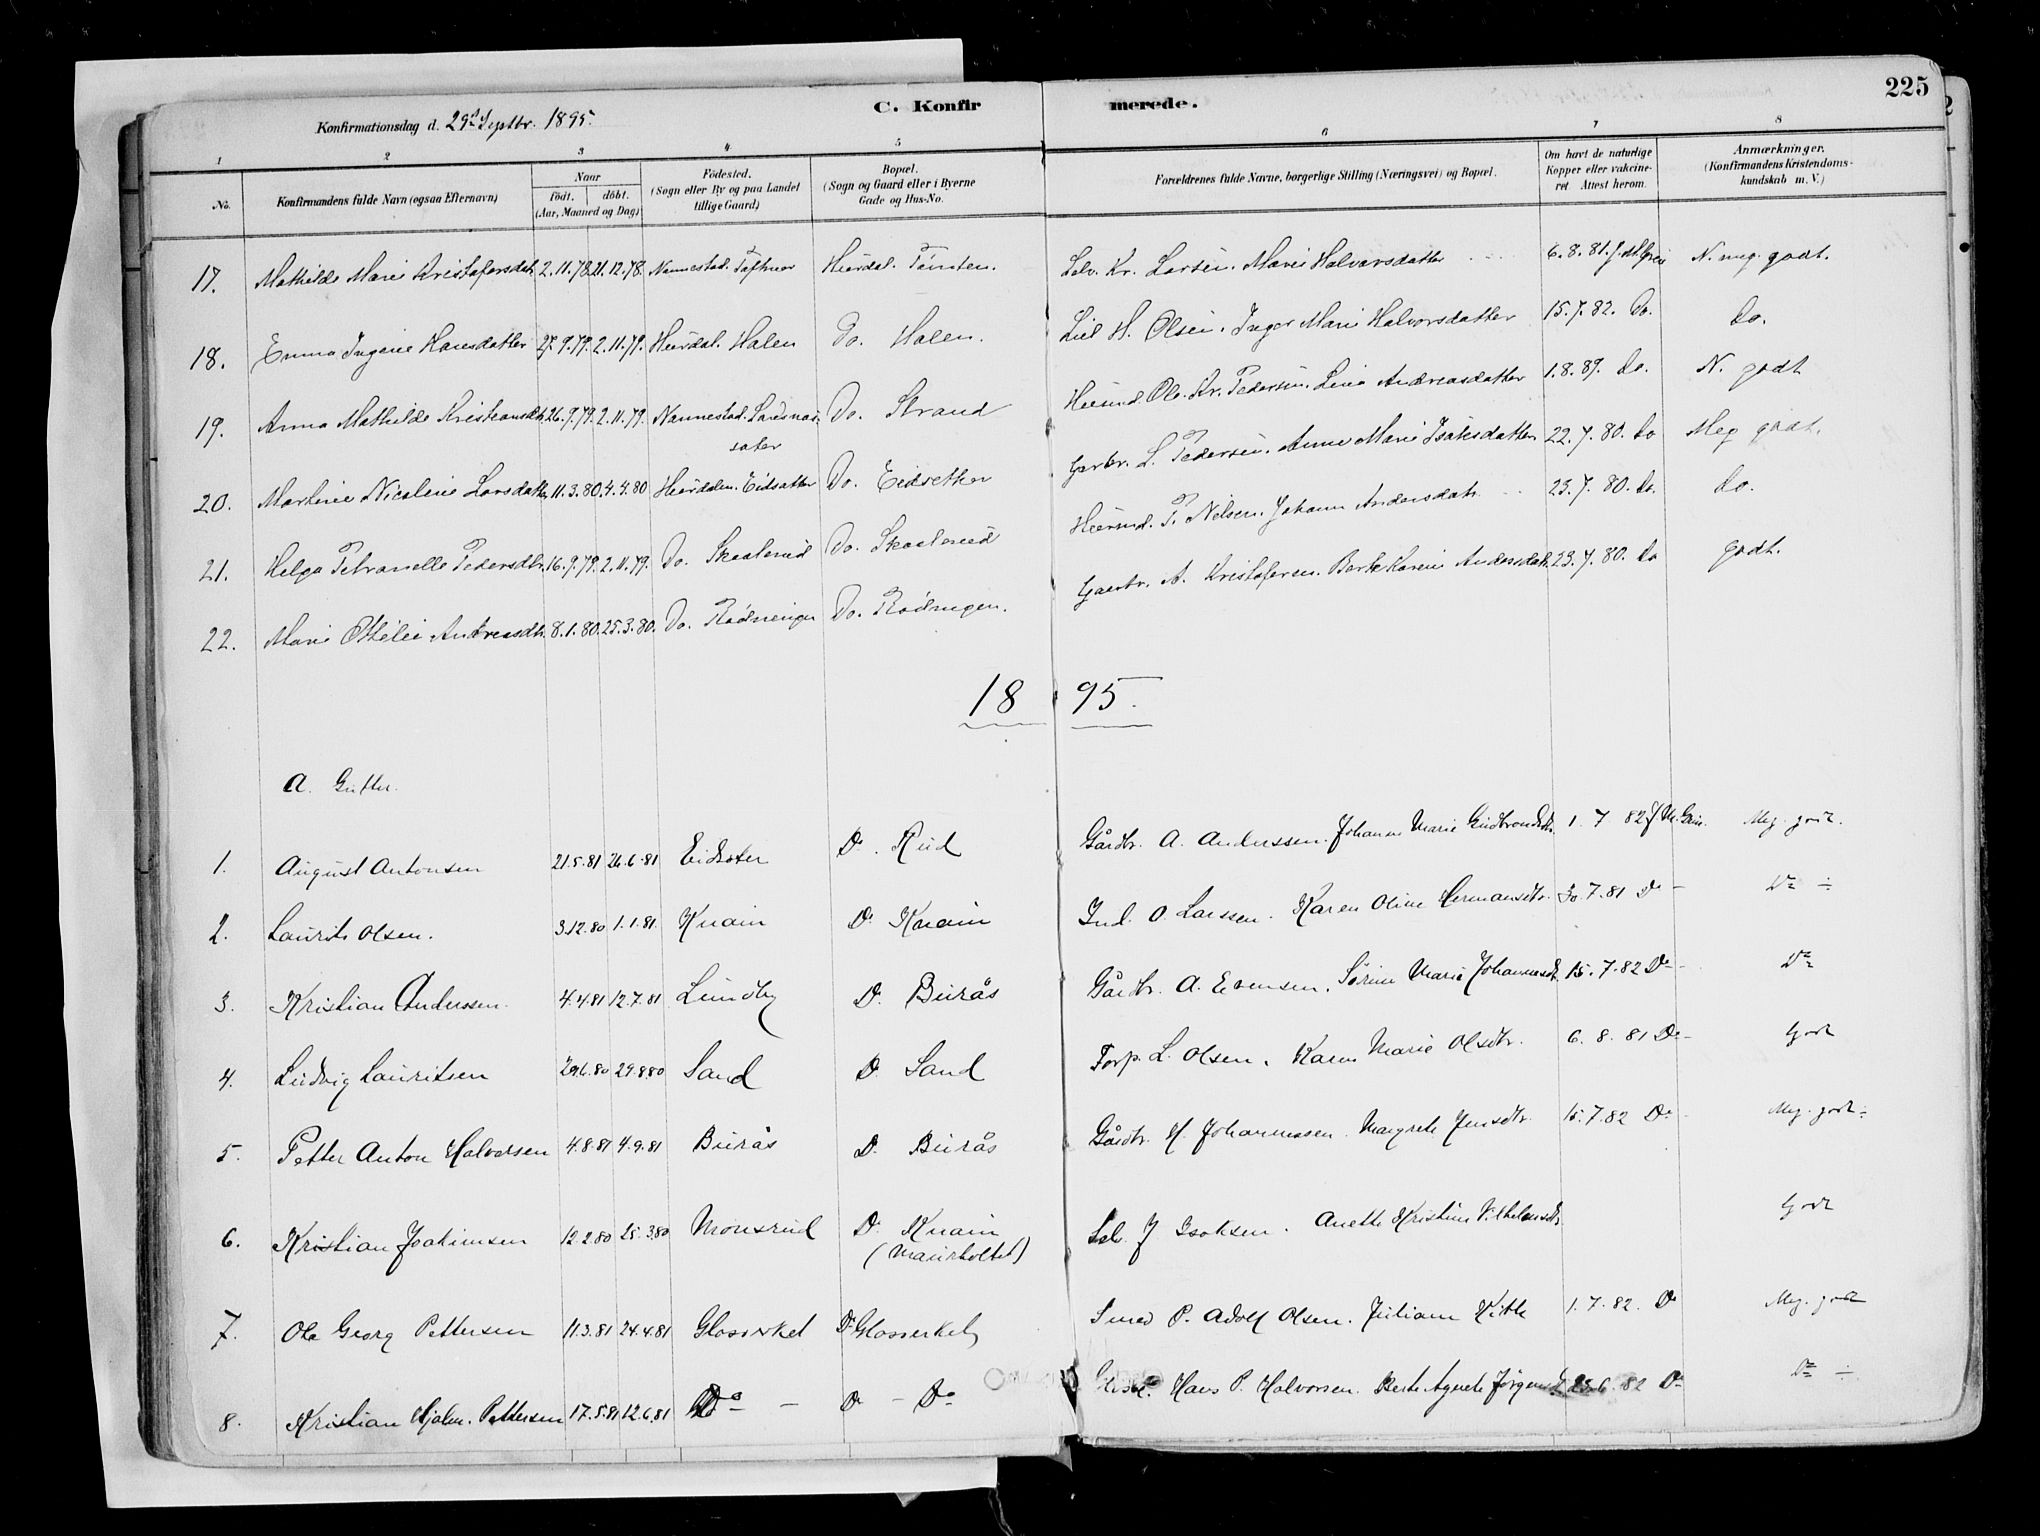 225
C. Konfirmerede.
Konfirmationsdag d. 29de Septbr. 1895.
1 2 3 4 5 6 7 8
No. Konfirmandens fulde Navn (ogsaa Efternavn) Naar født. døbt. (Aar, Maaned og Dag) Fødested. (Sogn eller By og paa Landet tillige Gaard) Bopæl. (Sogn og Gaard eller i Byerne Gade og Hus-No. Forældrenes fulde Navne, borgerlige Stilling (Næringsvei) og Bopæl. Om havt de naturlige Kopper eller vakcineret Attest herom. Anmærkninger. (Konfirmandens Kristendomskundskab m. V.)
17. Mathilde Marie Kristofersdatr. 2.11.78 21.12.78. Nannestad. Hurdal. Tömten. Selv. Kr. Larsen. Marie Halvorsdatter 6.8.81. N. meg. godt.
18. Emma Ingerie Hansdatter 27.9.79. 2.11.79. Hurdal. Halen Do. Halen. H. Olsen. Inger Marie Halvorsdatter 15.7.82. Do. Do.
19. Anna Mathilde Kristiansdtr. 26.9.79. 2.11.79. Nannestad. Do. Strand Husmd. Ole Kr. Pedersen. Lina Andreasdatter 1.8.89. Do. N. godt
20. Martine Nicoline Larsdatter 11.3.80. 4.4.80 Hurdalen. Eidsatter Do. Eidsether Garbr. L. Pedersen. Anne Marie Isaksdatter 22.7.80. Do Meg godt.
21. Helga Petranelle Pedersdtr. 16.9.79. 2.11.79. Do. Skaalerud Do. Skaalerud Husmd. P. Nilsen. Johanne Andersdatr. 23.7.80. Do. Do.
22. Marie Othilie Andreasdtr. 8.1.80. 25.3.80. Do. Rödningen Do. Rödningen. Gaardbr. A. Kristofersen. Berthe Karine Andersdatr. 23.7.80. Do godt.
1895.
A. Gutter.
1. August Antonsen 21.5.81 26.6.81 Eidsæter Do. Rud Gårdbr. A. Anderssen. Johanne Marie Gudbrandsdtr. 1.7 82 Meg. godt.
2. Laurits Olsen. 3.12.80 1.1.81. Knain Do Knain Ind. O. Larssen. Karen Oline Hermansdtr. 30.7.81 Do - Do -
3. Kristian Anderssen. 4.4.81 12.7.81 Lundby Do. Burås Gårdbr. A. Evensen. Sörine Marie Johannesdt. 15.7.82 Do - Do
4. Ludvig Lauritsen 29.6.80 29.8.80 Sand Do. Sand Torp. L. Olsen. Karen Marie Olsdtr. 6.8.81 Do - Godt
5. Petter Anton Halvorsen 4.8.81 4.9.81 Burås Do. Burås Gårdbr. H. Johannessen. Margrete Jensdtr. 15.7.82 Do Meg. godt -
6. Kristian Joakimsen 12.2.80 25.3.80 Monsrud Do. Knain (Maurholtet) Selv. J Isaksen. Anette Kristine Vilhelmsdtr. Godt
7. Ole Georg Pettersen 11.3.81 24.4.81 Glasverket Do Glasverket Smed P. Adolf Olsen. Juliane Kittle 1.7.82. Do Meg. godt
8. Kristian Hjalm. Pettersen 17.5.81 12.6.81 Do - Do - Do Hans P. Halvorsen. Berte Agnete 25.6.82 Do Do -